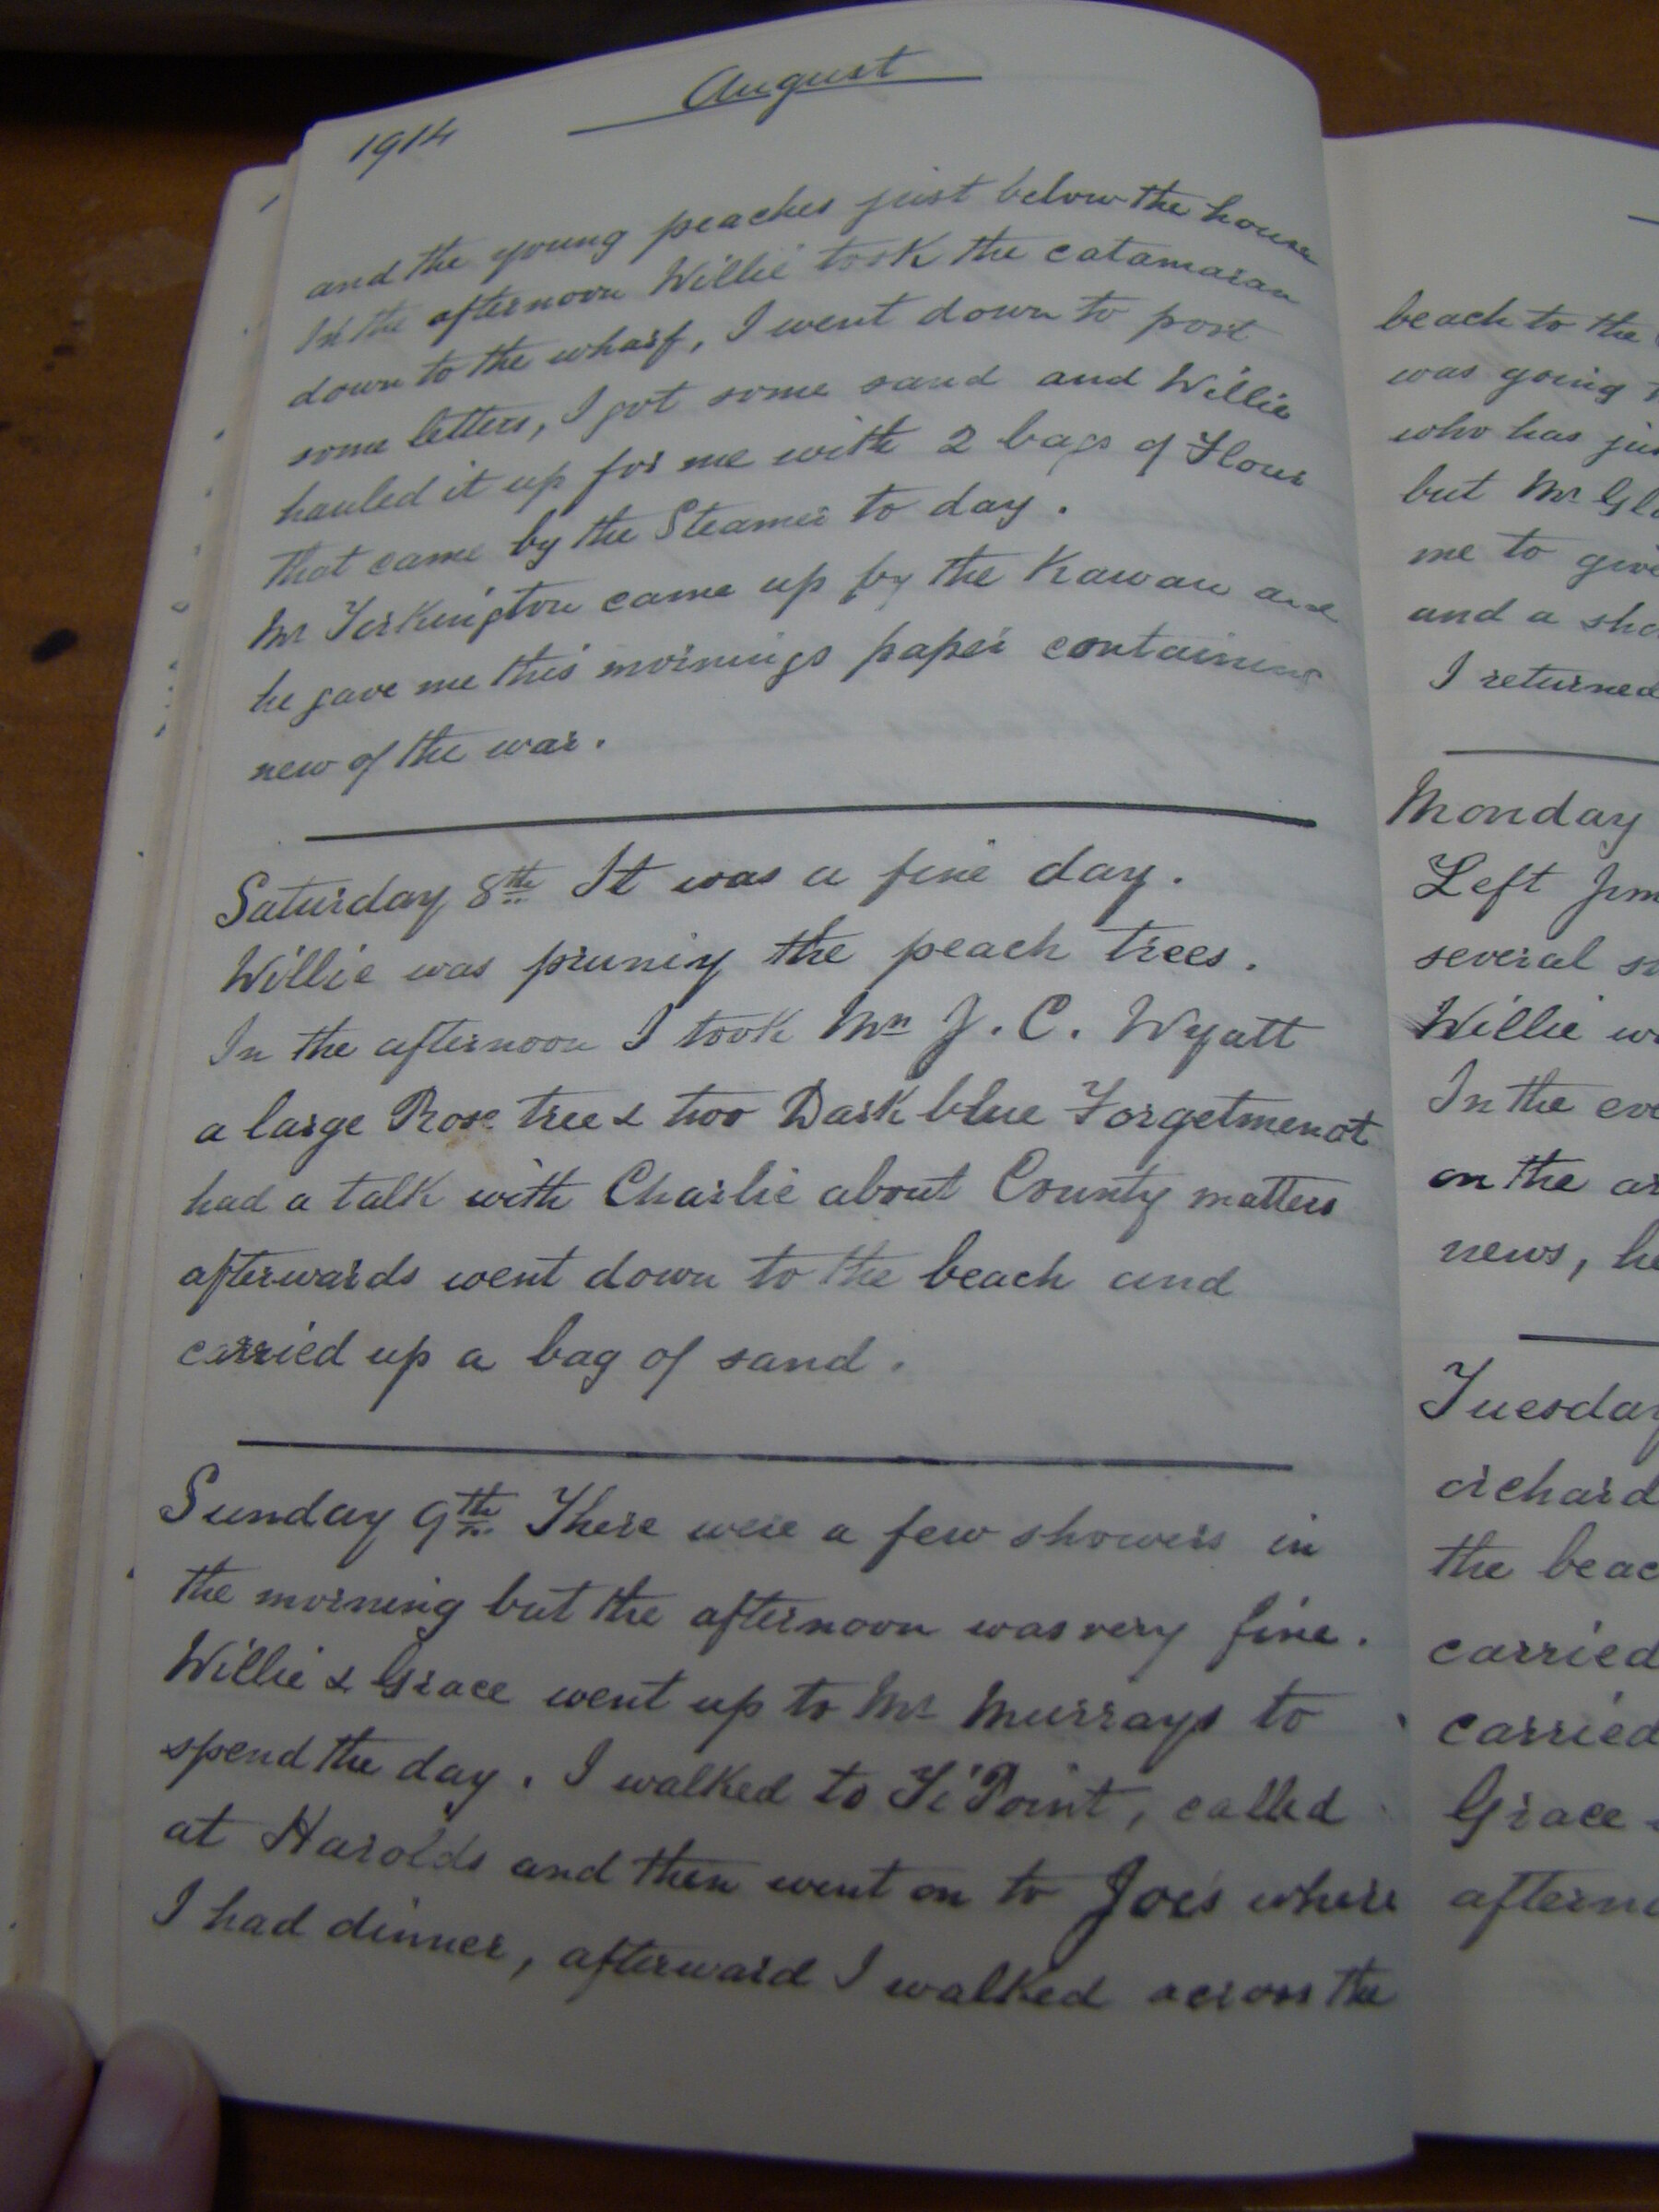 August
1914
and the young peaches just below the house
In the afternoon Willie took the catamaran
down to the wharf, I went down to post
some letters, I got some sand and Willie
hauled it up for me with 2 bags of Flour
that came by the Steamer to day.
Mr Torkington came up by the Kawau and
he gave me this mornings paper containing
new of the war.
Saturday 8th It was a fine day.
Willie was pruning the peach trees.
In the afternoon I took Mrs J. C. Wyatt
a large Rose tree & two Dark blue Forgetmenot
had a talk with Charlie about County matters
afterwards went down to the beach and
carried up a bag of sand.
Sunday 9th There were a few showers in
the morning but the afternoon was very fine.
Willie & Grace went up to Mr Murrays to
spend the day. I walked to Ti Point, called
at Harolds and then went on to Joes where
I had dinner, afterward I walked across the
beach to the
was going
who has
but Mr
me to
and a
I returned
Monday
Left
several
Willie
In the
on the
news,
Tuesday
orchard
the
carried
carried
Grace